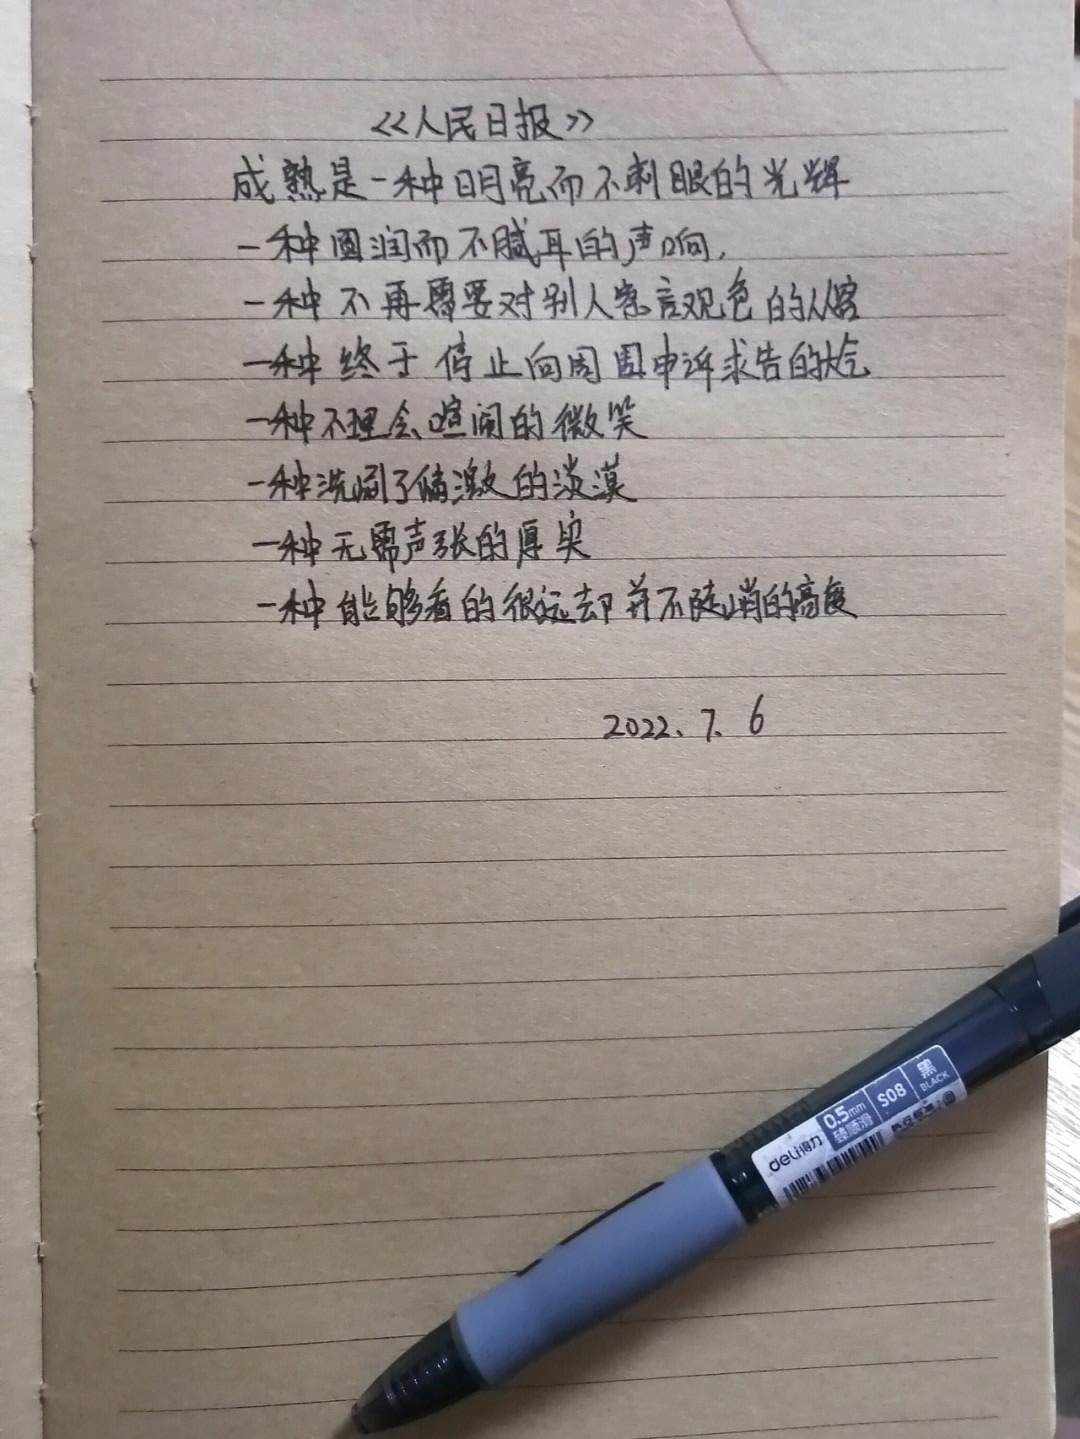 《人民日报》
成熟是一种明亮而不刺眼的光辉
一种圆润而不腻耳的声响,
一种不再需要对别人察言观色的从容
一种终于停止向周围申诉求告的大气
一种不理会喧闹的微笑
一种洗刷了偏激的淡漠
一种无需声张的厚实
一种能够看的很远却并不陡峭的高度
2022.7.6
deli得力 0.5mm 臻顺滑 S08 黑 BLACK